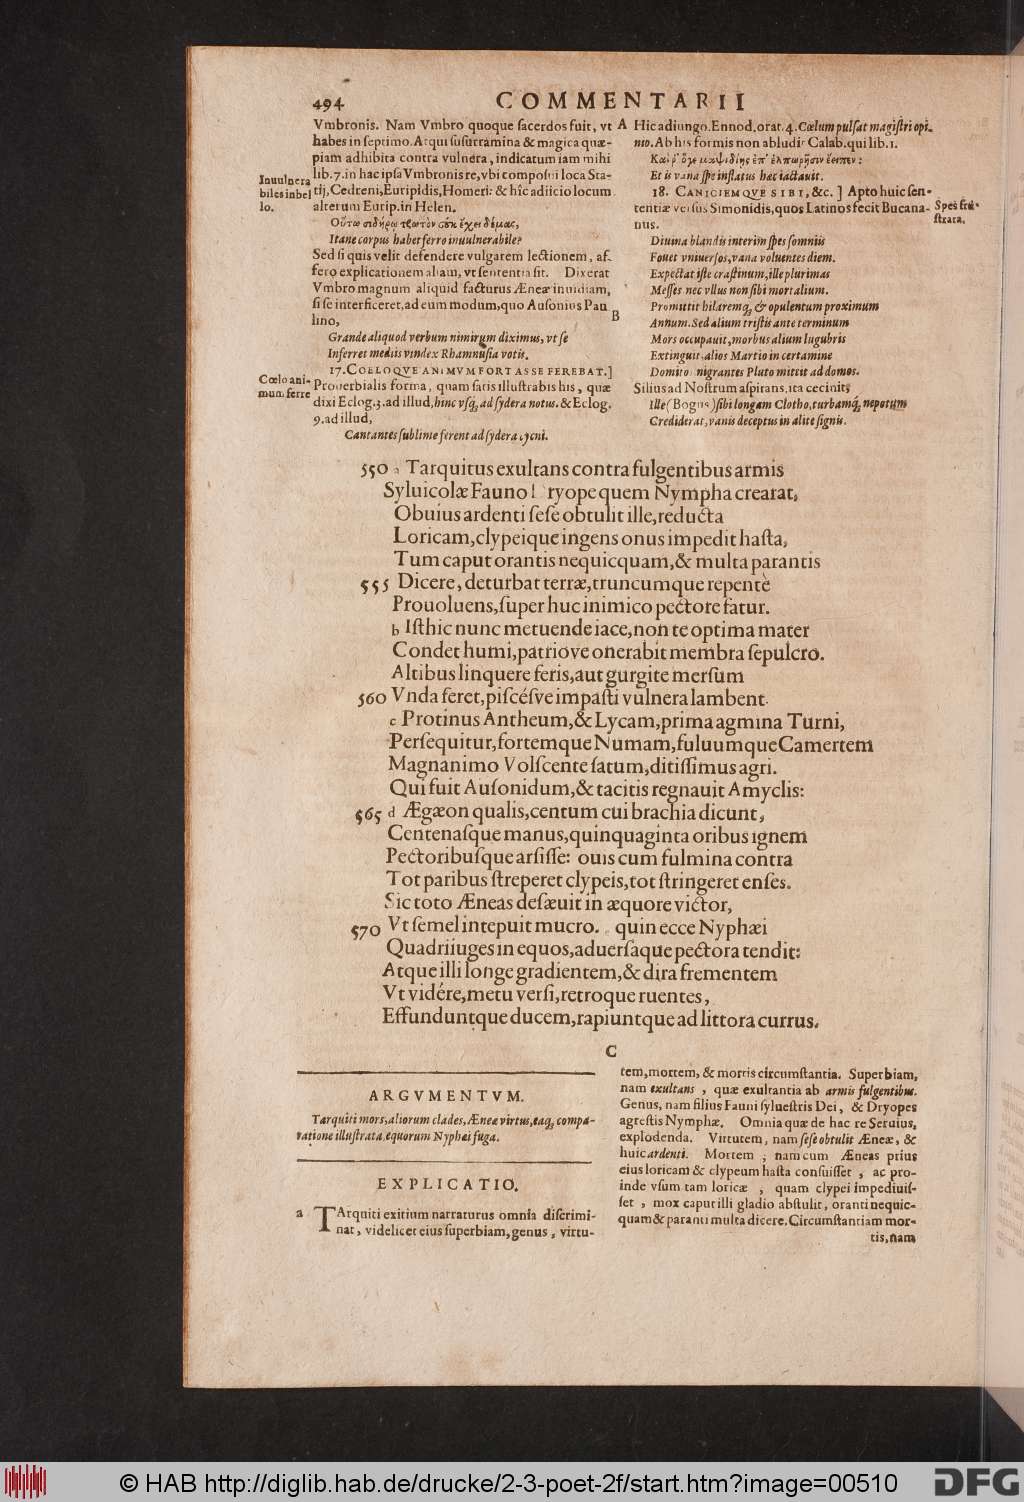 494 COMMENTARII
Vmbronis. Nam Vmbro quoque sacerdos fuit, vt
habes in septimo. Atqui susurramina & magica quæ-
piam adhibita contra vulnera, indicatum iam mihi
lib. 7. in hac ipsa Vmbronis re, vbi composui loca Sta-
tij, Cedreni, Euripidis, Homeri: & hîc adiicio locum
alterum Eurip. in Helen.
Inuulnera
biles inbel
lo.
Οὕτω σιδήρῳ τρωτὸν οὐκ ἔχει δέμας,
Itane corpus habet ferro inuulnerabile?
Sed si quis velit defendere vulgarem lectionem, af-
fero explicationem aliam, vt sententia sit. Dixerat
Vmbro magnum aliquid facturus Æneæ inuidiam,
si se interficeret, ad eum modum, quo Ausonius Pau
lino,
Grande aliquod verbum nimirum diximus, vt se
Inferret mediis vindex Rhamnusia votis.
17. COELOQVE ANIMVM FORTASSE FEREBAT.]
Cœlo ani-
mum ferre
Prouerbialis forma, quam satis illustrabis his, quæ
dixi Eclog. 3. ad illud, hinc vsq; ad sydera notus. & Eclog.
9. ad illud,
Cantantes sublime ferent ad sydera cycni.
A
B
Hic adiungo. Ennod. orat. 4. Cœlum pulsat magistri opi-
nio. Ab his formis non abludit Calab. qui lib. 1.
Καί ῥ' ὅγε μαψιδίης ἐπ' ἐλπωρῇσιν ἔειπεν:
Et is vana spe inflatus hæc iactauit.
18. CANICIEMQVE SIBI, &c. ] Apto huic sen-
tentiæ versus Simonidis, quos Latinos fecit Bucana-
nus.
Spes fru-
strata.
Diuina blandis interim spes somniis
Fouet vniuersos, vana voluentes diem.
Expectat iste crastinum, ille plurimas
Messes nec vllus non sibi mortalium.
Promittit hilaremq; & opulentum proximum
Annum. Sed alium tristis ante terminum
Mors occupauit, morbus alium lugubris
Extinguit, alios Martio in certamine
Domitos nigrantes Pluto mittit ad domos.
Silius ad Nostrum aspirans, ita cecinit;
Ille (Bogus) sibi longam Clotho, turbamq; nepotum
Crediderat, vanis deceptus in alite signis.
550 a Tarquitus exultans contra fulgentibus armis
Syluicolæ Fauno Dryope quem Nympha crearat,
Obuius ardenti sese obtulit ille, reducta
Loricam, clypeique ingens onus impedit hasta,
Tum caput orantis nequicquam, & multa parantis
555 Dicere, deturbat terræ, truncumque repentè
Prouoluens, super huc inimico pectore fatur.
b Isthic nunc metuende iace, non te optima mater
Condet humi, patriove onerabit membra sepulcro.
Altibus linquere feris, aut gurgite mersum
560 Vnda feret, piscésve impasti vulnera lambent.
c Protinus Antheum, & Lycam, prima agmina Turni,
Persequitur, fortemque Numam, fuluumque Camertem
Magnanimo Volscente satum, ditissimus agri.
Qui fuit Ausonidum, & tacitis regnauit Amyclis:
565 d Ægæon qualis, centum cui brachia dicunt,
Centenasque manus, quinquaginta oribus ignem
Pectoribusque arsisse: ouis cum fulmina contra
Tot paribus streperet clypeis, tot stringeret enses.
Sic toto Æneas desæuit in æquore victor,
570 Vt semel intepuit mucro. e quin ecce Nyphæi
Quadriiuges in equos, aduersaque pectora tendit:
Atque illi longe gradientem, & dira frementem
Vt vidére, metu versi, retroque ruentes,
Effunduntque ducem, rapiuntque ad littora currus.
C
ARGVMENTVM.
Tarquiti mors, aliorum clades, Æneæ virtus, eaq; compa-
ratione illustrata, equorum Nyphæi fuga.
EXPLICATIO.
a TArquiti exitium narraturus omnia discrimi-
nat, videlicet eius superbiam, genus, virtu-
tem, mortem, & mortis circumstantia. Superbiam,
nam exultans, quæ exultantia ab armis fulgentibus.
Genus, nam filius Fauni syluestris Dei, & Dryopes
agrestis Nymphæ. Omnia quæ de hac re Seruius,
explodenda. Virtutem, nam sese obtulit Æneæ, &
huic ardenti. Mortem, nam cum Æneas prius
eius loricam & clypeum hasta consuisset, ac pro-
inde vsum tam loricæ, quam clypei impediuis-
set, mox caput illi gladio abstulit, oranti nequic-
quam & paranti multa dicere. Circumstantiam mor-
tis, nam
© HAB http://diglib.hab.de/drucke/2-3-poet-2f/start.htm?image=00510 DFG